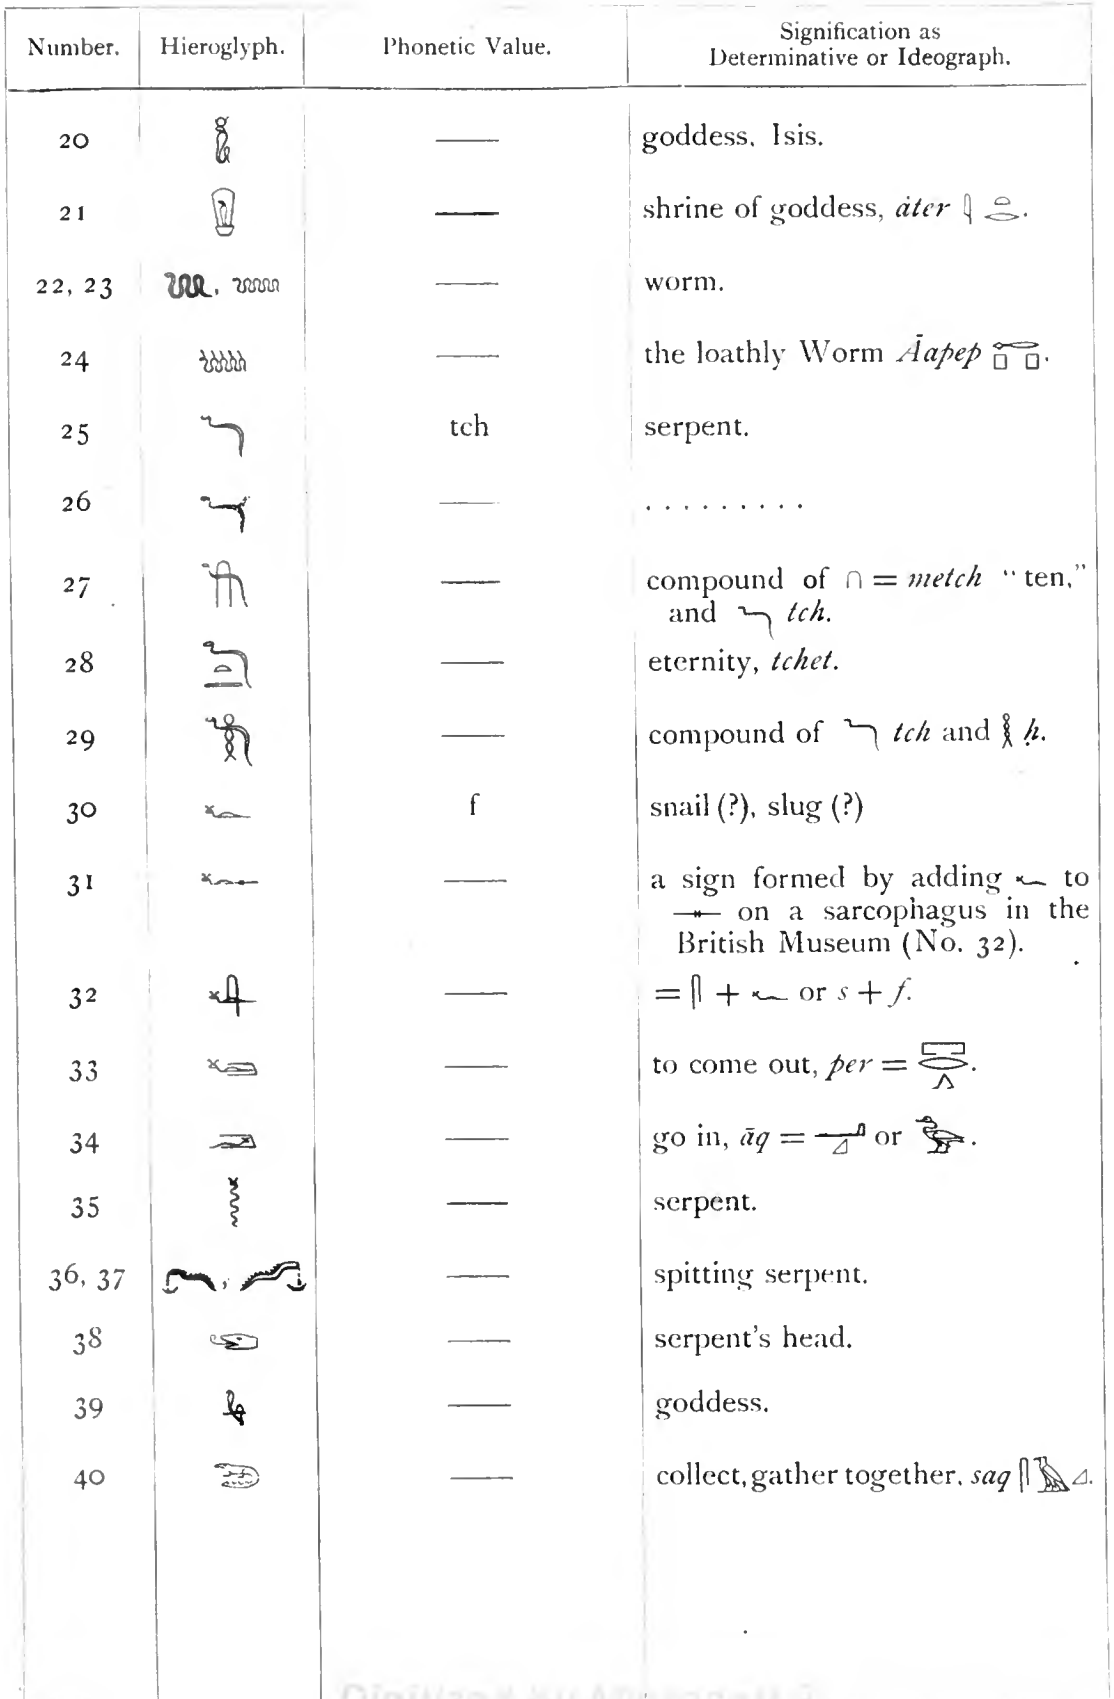 Number. Hieroglyph. Phonetic Value. Signification as Determinative or Ideograph.
20 — goddess, Isis.
21 — shrine of goddess, ȧter 𓇋 𓏏 𓂋.
22, 23 — worm.
24 — the loathly Worm Āapep
25 𓆓 tch serpent.
26 — . . . . . . . . . .
27 — compound of ∩ = metch “ten,”
and 𓆓 tch.
28 — eternity, tchet.
29 — compound of 𓆓 tch and 𓎛 ḥ.
30 𓆑 f snail (?), slug (?)
31 — a sign formed by adding 𓆑 to
𓊃 on a sarcophagus in the
British Museum (No. 32).
32 — = 𓋴 + 𓆑 or s + f.
33 — to come out, per = 𓉐𓂋𓂻.
34 — go in, āq = 𓂝𓈎 or 𓅧.
35 — serpent.
36, 37 — spitting serpent.
38 — serpent's head.
39 — goddess.
40 — collect, gather together, saq 𓋴𓄿𓈎.